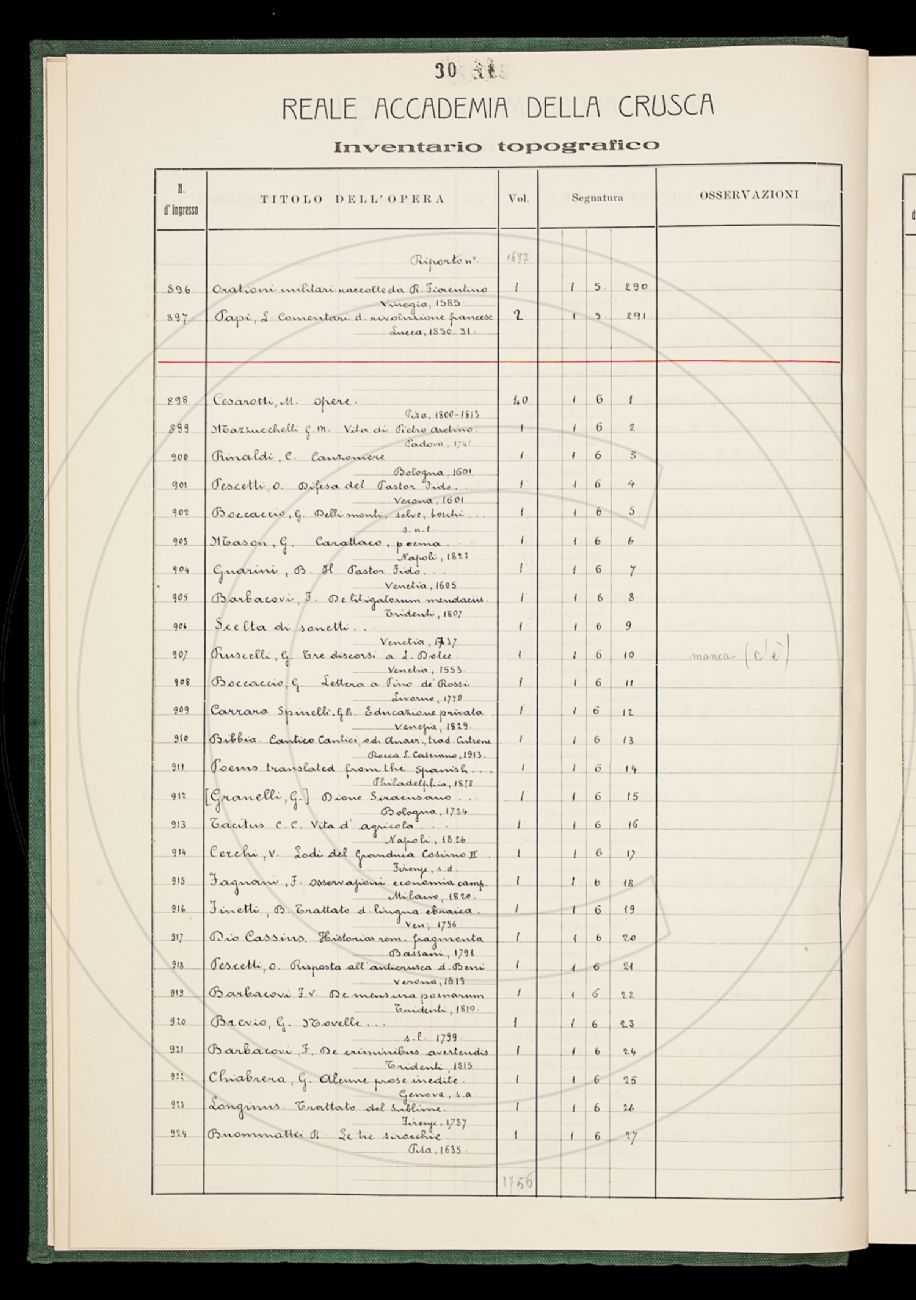 30
REALE ACCADEMIA DELLA CRUSCA
Inventario topografico
N. d'ingresso TITOLO DELL'OPERA Vol. Segnatura OSSERVAZIONI
Riporto n.° 1687
896 Orationi militari raccolte da R. Fiorentino 1 1 5 290
Vinegia, 1585
897 Papi, L Comentari d. rivoluzione francese 2 1 5 291
Lucca, 1830-31.
898 Cesarotti, M. Opere. 40 1 6 1
Pisa, 1800-1813
899 Mazzucchelli G. M. Vita di Pietro Aretino. 1 1 6 2
Padova, 1741
900 Rinaldi, C. Canzoniere. 1 1 6 3
Bologna, 1601
901 Pescetti, O. Difesa del Pastor Fido. . 1 1 6 4
Verona, 1601
902 Boccaccio, G. Delli monti, selve, boschi ... 1 1 6 5
s. n. t.
903 Mason, G. Carattaco, poema. ... 1 1 6 6
Napoli, 1823
904 Guarini, B. Il Pastor Fido. .. 1 1 6 7
Venetia, 1605
905 Barbacovi, F. De litigatorum mendaciis. 1 1 6 8
Tridenti, 1807
906 Scelta di sonetti. .. 1 1 6 9
Venetia, 1737
907 Ruscelli, G. Tre discorsi a L. Dolce. 1 1 6 10 manca (c'è)
Venetia, 1553
908 Boccaccio, G. Lettera a Pino de' Rossi 1 1 6 11
Livorno, 1770
909 Carraro Spinelli. G.B. Educazione privata 1 1 6 12
Venezia, 1829.
910 Bibbia. Cantico Cantici, ed. Anaer., trad. Cutrone 1 1 6 13
Rocca S. Casciano, 1913.
911 Poems translated from the Spanish ... 1 1 6 14
Philadelphia, 1878
912 [Granelli, G.] Dione Siracusano ... 1 1 6 15
Bologna, 1734
913 Tacitus C. C. Vita d' Agricola ... 1 1 6 16
Napoli, 1826
914 Cerchi, V. Lodi del Granduca Cosimo II. 1 1 6 17
Firenze, s. d.
915 Fagnani, F. Osservazioni economia camp. 1 1 6 18
Milano, 1820.
916 Finetti, B. Trattato d. lingua ebraica. 1 1 6 19
Ven., 1756
917 Dio Cassius. Historiar. rom. fragmenta 1 1 6 20
Bassani, 1798
918 Pescetti, O. Risposta all'anticrusca d. Beni 1 1 6 21
Verona, 1613
919 Barbacovi F. V. De mensura poenarum 1 1 6 22
Tridenti, 1810.
920 Brevio, G. Novelle ... 1 1 6 23
s. l. 1799.
921 Barbacovi, F. De criminibus avertendis 1 1 6 24
Tridenti, 1815
922 Chiabrera, G. Alcune prose inedite. 1 1 6 25
Genova, s. a.
923 Longinus. Trattato del Sublime. 1 1 6 26
Firenze, 1737
924 Buommattei B. Le tre sirocchie 1 1 6 27
Pisa, 1635.
1756